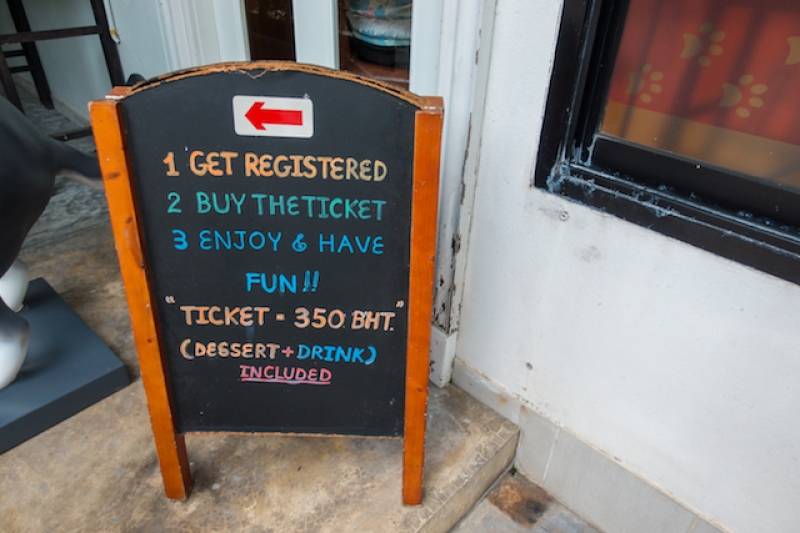 1 GET REGISTERED
2 BUY THE TICKET
3 ENJOY & HAVE
FUN!!
"TICKET - 350 BHT."
(DESSERT+DRINK)
INCLUDED